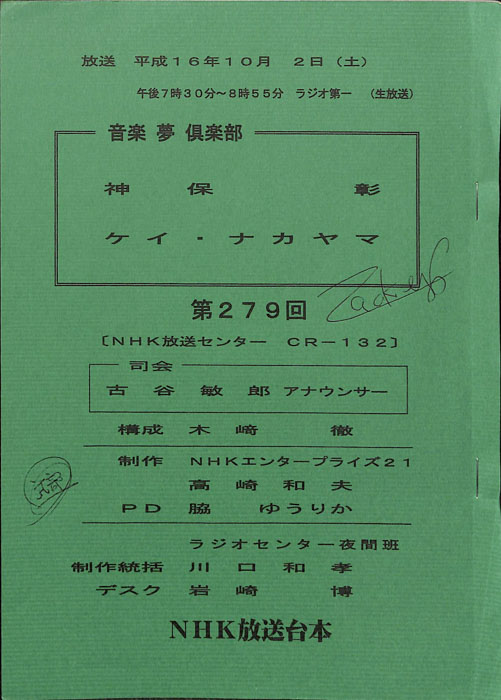 放送 平成16年10月 2日(土)
午後7時30分~8時55分 ラジオ第一 (生放送)
音楽 夢 倶楽部
神保 彰
ケイ・ナカヤマ
第279回
〔NHK放送センター CR-132〕
司会
古谷敏郎 アナウンサー
構成 木﨑 徹
制作 NHKエンタープライズ21
高崎和夫
PD 脇 ゆうりか
ラジオセンター夜間班
制作統括 川口和孝
デスク 岩崎 博
NHK放送台本